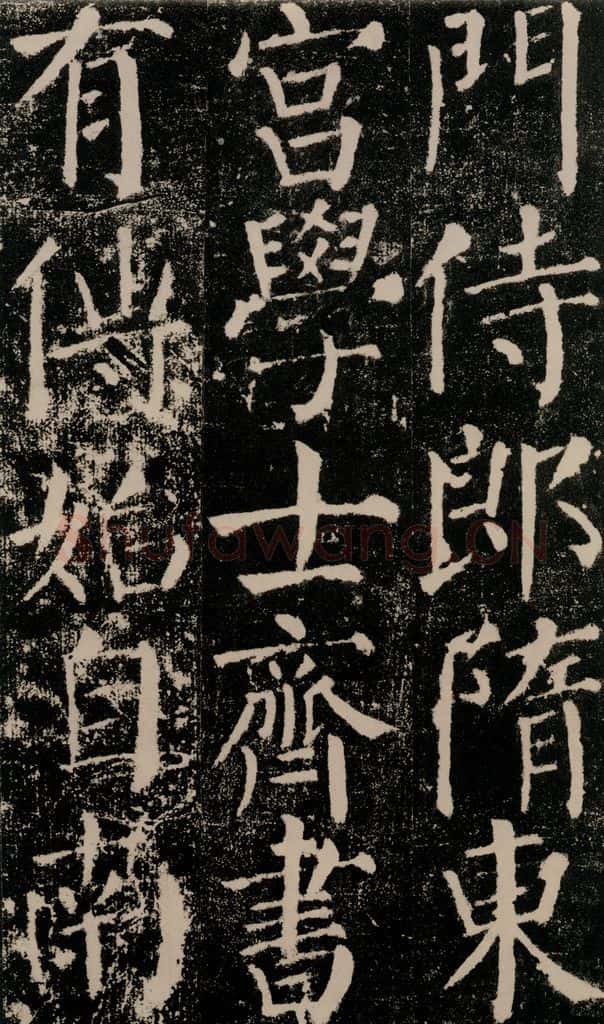 門侍郎隋東
宮學士齊書
有傳始自南
Shufawang.CN